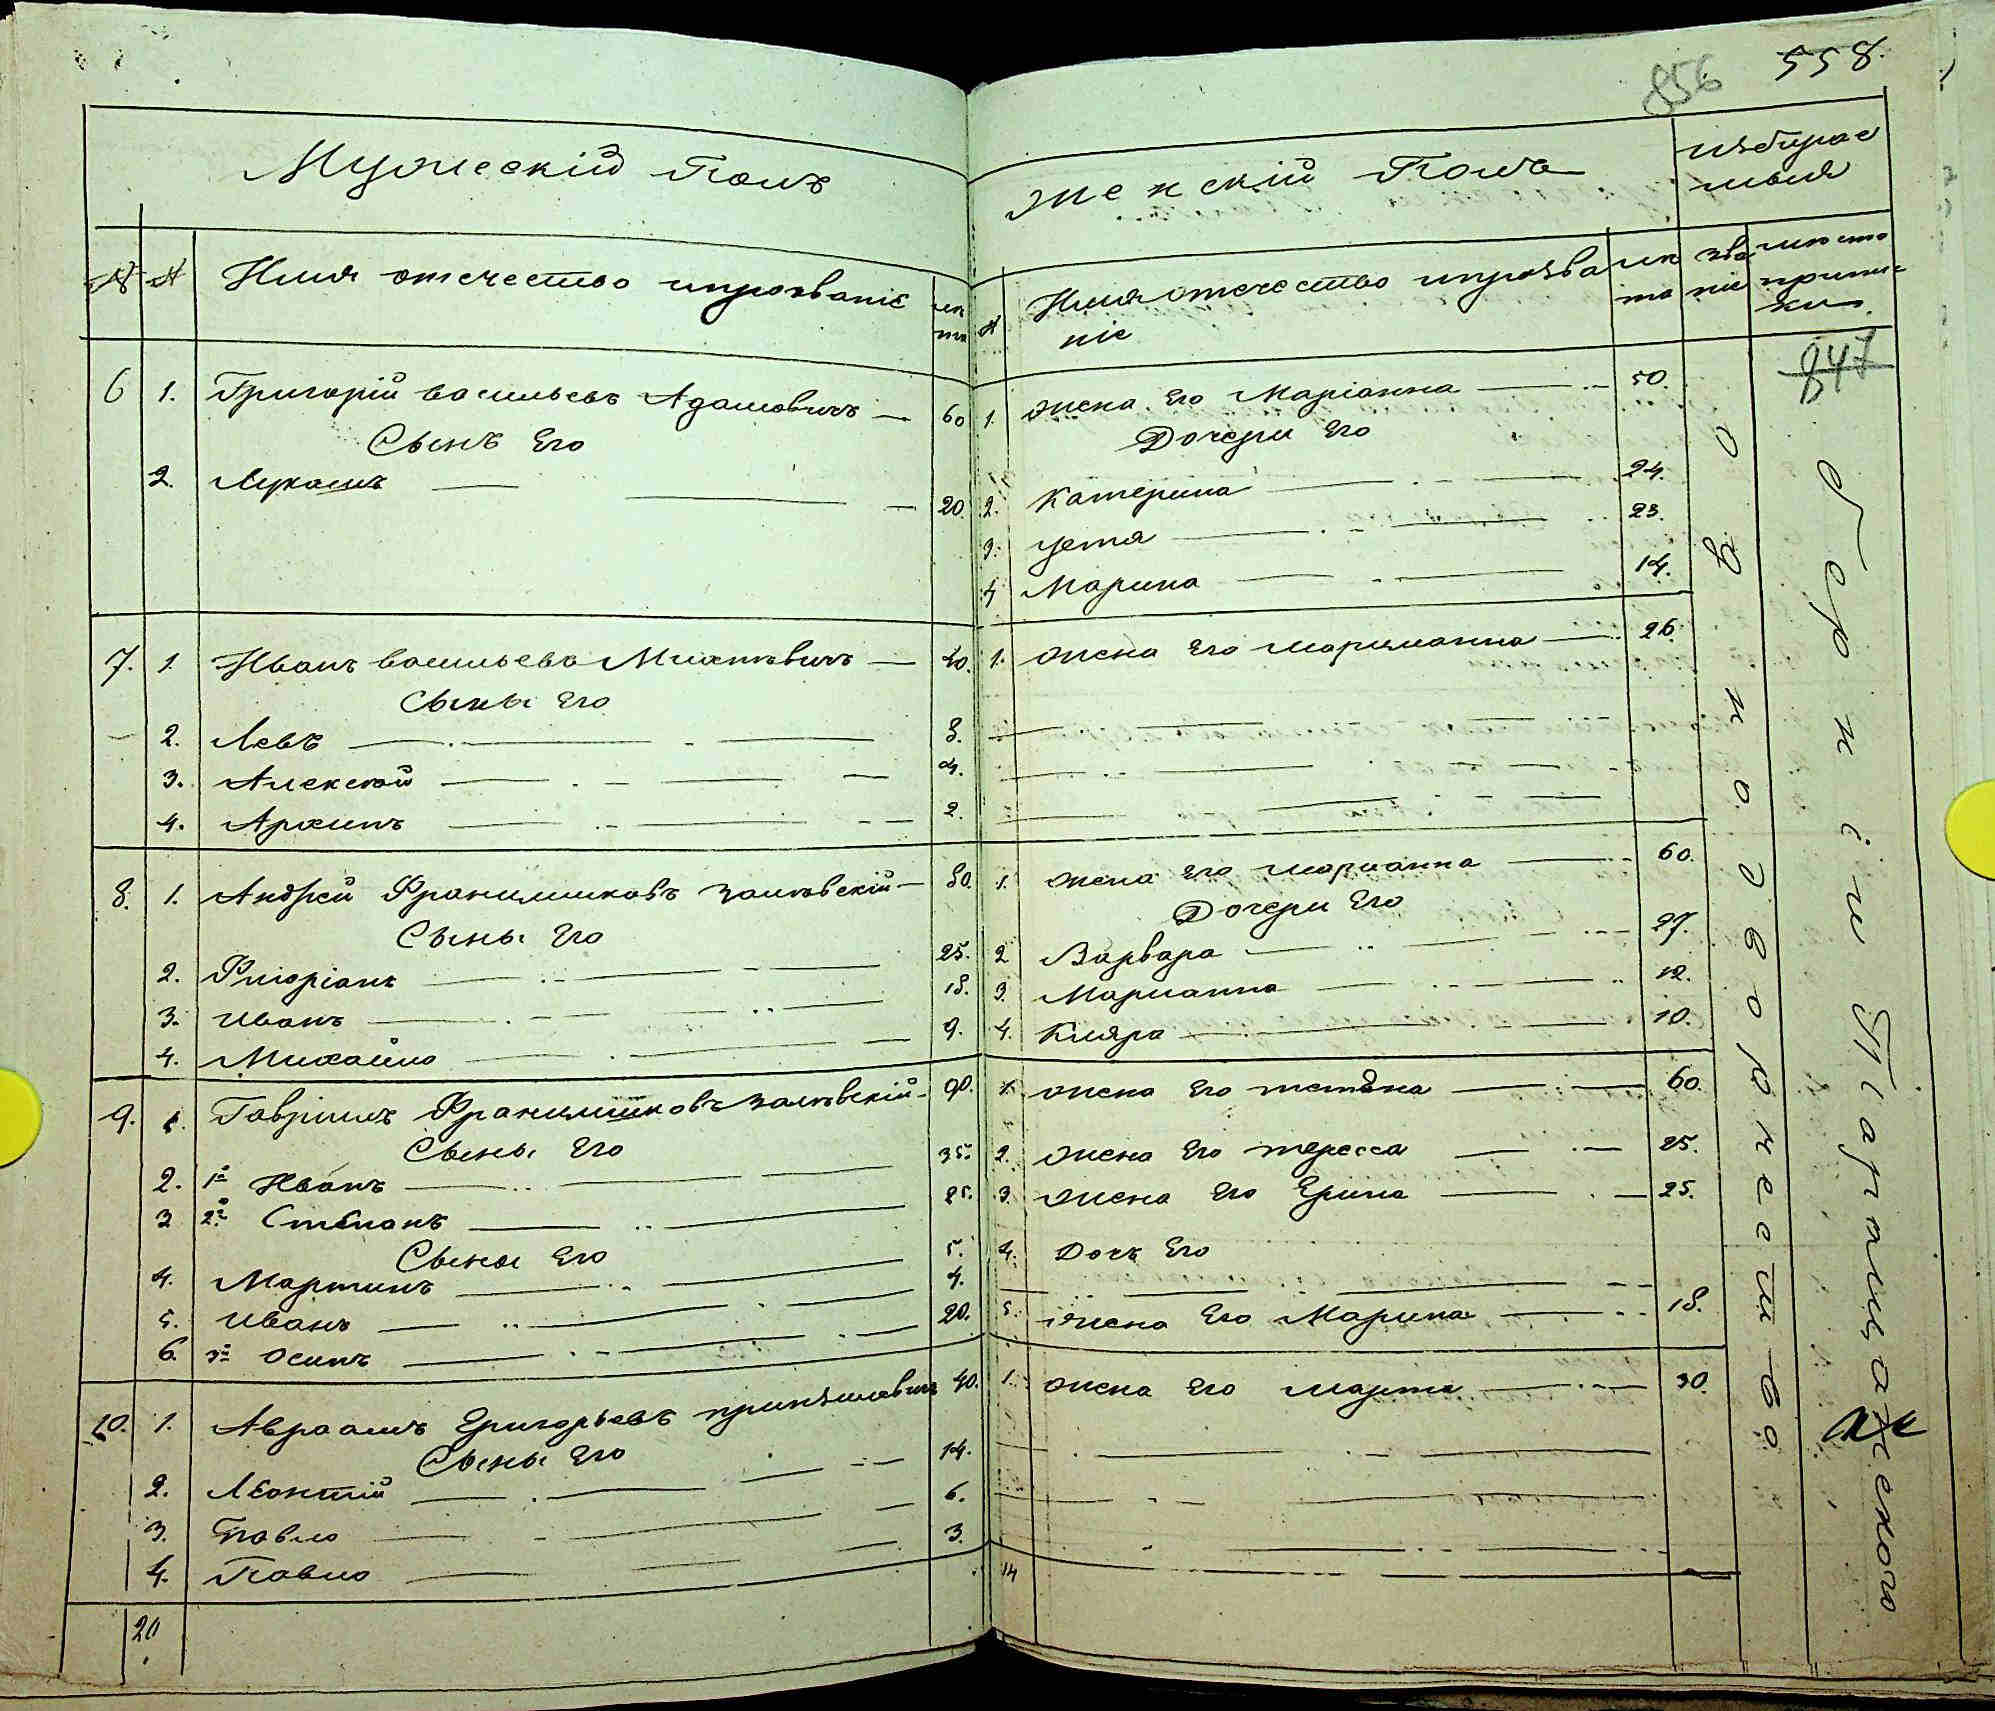 856 558.
Мужескій Полъ
№ № Имя отечество ипрозваніе лѣта
6 1. Григорій васильевъ Адамовичъ — 60
Сынъ Его
2. Лукашъ — 20.
7. 1. Иванъ васильевъ — 40.
Сыны Его
2. Левъ — 8.
3. Алексѣй — 4.
4. Архипъ — 2.
8. 1. Андрей Францишковъ — 80.
Сыны Его
2. Флоріанъ — 25.
3. Иванъ — 18.
4. Михайло — 9.
9. 1. Гавріилъ Францишковъ — 90.
Сыны Его
2. 1й Иванъ — 35.
3 2й Степанъ — 25.
Сыны Его
4. Мартинъ — 5.
5. Иванъ — 4.
6. 3й Осипъ — 20.
10. 1. Авраамъ Григорьевъ 40.
Сыны Его
2. Леонтій — 14.
3. Павло — 6.
4. Павло — 3.
20
Женскій Полъ
избирае
мыя
№ Имя отечество ипрозва
ніе
лѣ
та
зва
ніе
мѣсто
припи-
ски.
847
1. жена Его Маріанна — 50.
Дочери Его
2. Катерина — 24.
3. Уетя — 23.
4 Марина — 14.
1. жена Его Марцианна — 26.
1. жена Его Марианна — 60.
Дочери Его
2 Варвара — 27.
3. Марианна — 12.
4. Кляра — 10.
1. жена Его — 60.
2. жена Его тересса — 25.
3. жена Его Ерина — 25.
4. Дочь Его
5. жена Его Марина — 18.
1. жена Его Марта — 30.
14
однодворчество